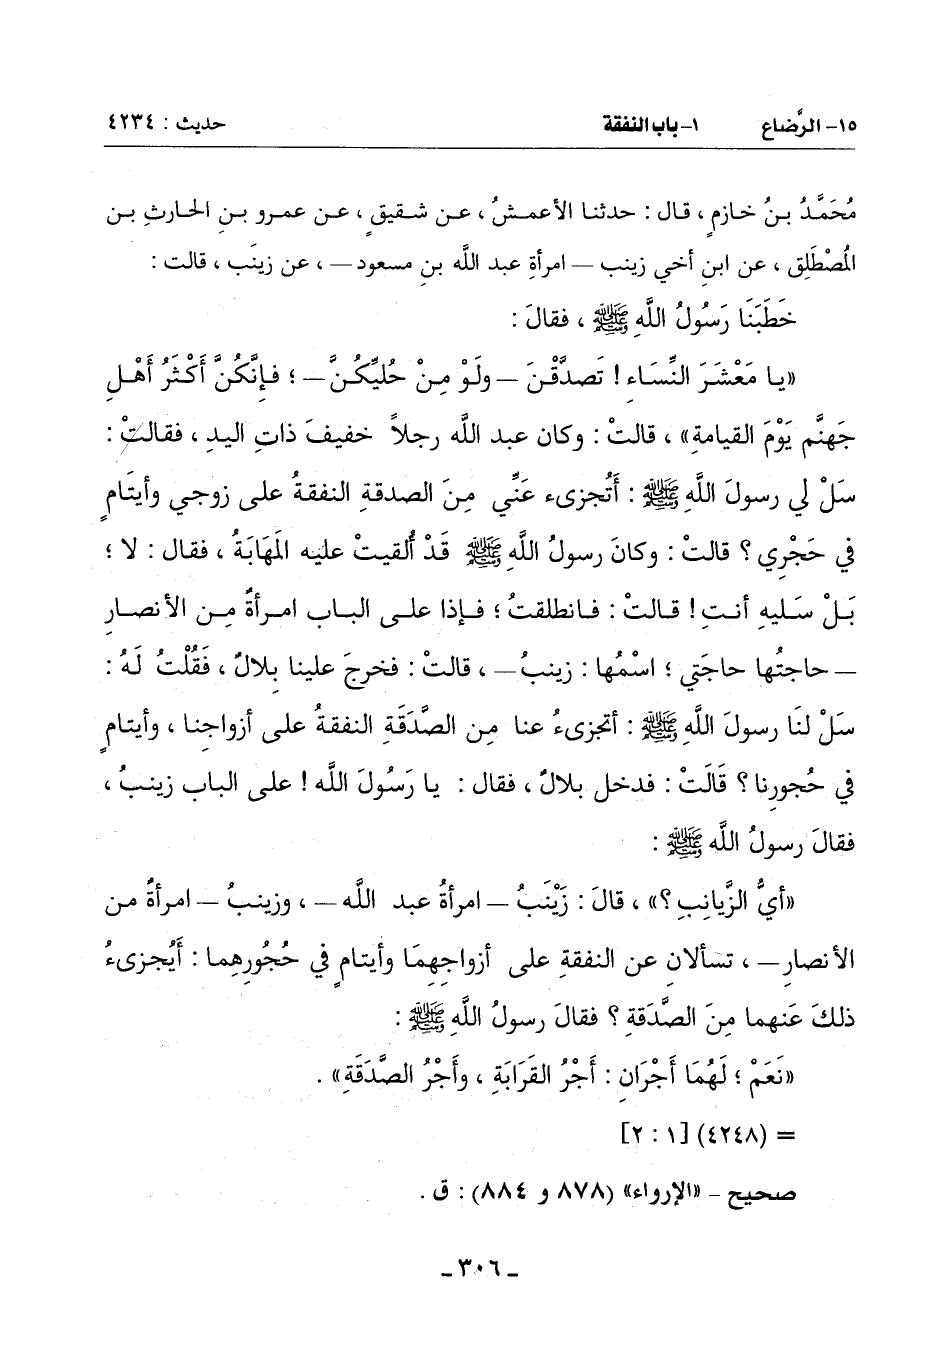 ١٥- الرَّضاع ١- باب النفقة حديث : ٤٢٣٤
مُحَمَّدُ بنُ خازمٍ ، قال : حدثنا الأعمشُ ، عن شقيقٍ ، عن عمرو بنِ الحارثِ بن
المُصْطَلِقِ ، عن ابنِ أخي زينب – امرأةِ عبد اللَّه بنِ مسعود – ، عن زينَب ، قالت :
خَطَبَنَا رَسُولُ اللَّهِ ﷺ ، فقالَ :
«يا مَعْشَرَ النِّسَاءِ ! تَصدَّقْنَ – ولَوْ مِنْ حُلِيِّكُنَّ – ؛ فإنَّكُنَّ أَكْثَرُ أَهْلِ
جَهنَّمِ يَوْمَ القيامةِ» ، قالتْ : وكان عبد اللَّه رجلاً خفيفَ ذاتِ اليدِ ، فقالتْ :
سَلْ لي رسولَ اللَّهِ ﷺ : أَتُجزىء عَنِّي مِنَ الصدقةِ النفقةُ على زوجي وأيتَامٍ
في حَجْرِي ؟ قالتْ : وكانَ رسولُ اللَّهِ ﷺ قَدْ أُلقيتْ عليه المَهَابَةُ ، فقال : لا ؛
بَلْ سَليهِ أنتِ ! قالتْ : فانطلقتُ ؛ فإذا على الباب امرأةٌ مِن الأنصارِ
– حاجتُها حاجَتي ؛ اسْمُها : زينبُ – ، قالتْ : فخرجَ علينا بلالٌ ، فَقُلْتُ لَهُ :
سَلْ لنَا رسولَ اللَّهِ ﷺ : أتجزىءُ عنا مِن الصَّدَقَةِ النفقةُ على أزواجِنا ، وأيتامٍ
في حُجورِنا ؟ قَالَتْ : فدخل بلالٌ ، فقال : يا رَسُولَ اللَّه ! على الباب زينبُ ،
فقالَ رسولُ اللَّه ﷺ :
«أيُّ الزَّيانِبِ ؟» ، قالَ : زَيْنَبُ – امرأةُ عبد اللَّه – ، وزينبُ – امرأةٌ من
الأنصارِ – ، تسألانِ عن النفقةِ على أزواجِهِمَا وأيتامٍ في حُجُورِهِما : أَيُجزىءُ
ذلكَ عَنهما مِنَ الصَّدَقةِ ؟ فقالَ رسولُ اللَّهِ ﷺ :
«نَعَمْ ؛ لَهُمَا أَجْرَانِ : أَجْرُ القَرَابَةِ ، وأَجْرُ الصَّدَقَةِ» .
= (٤٢٤٨) [١ : ٢]
صحيح – «الإرواء» (٨٧٨ و ٨٨٤) : ق .
- ٣٠٦ -